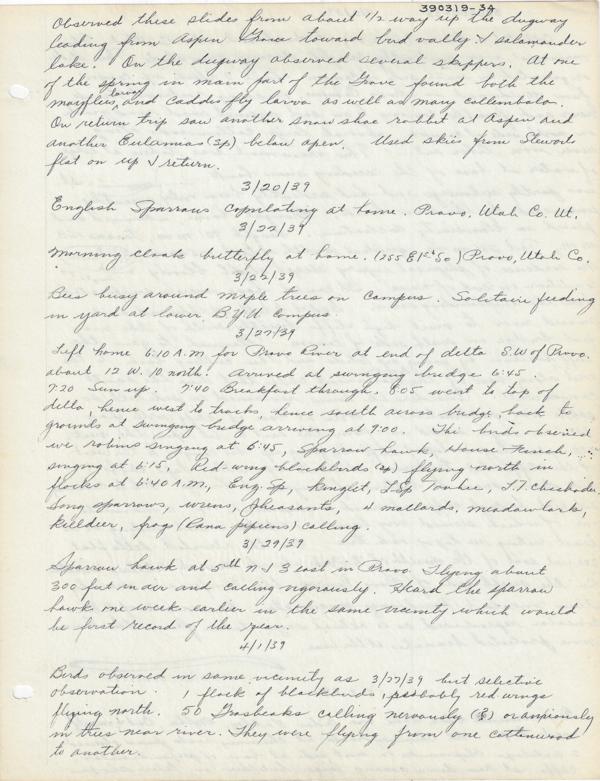 390319-34
Observed these slides from about 1/2 way up the dugway
leading from Aspen Grove toward bird valley & salamander
lake. On the dugway observed several skippers. At one
of the spring in main part of the Grove found both the
mayflies larva, and Caddis fly larva as well as many collembola.
On return trip saw another snow shoe rabbit at Aspen and
another Eutamias (sp) below open. Used skies from Stewarts
flat on up & return.
3/20/39
English Sparrows copulating at home. Provo, Utah Co. Ut.
3/22/39
Morning cloak butterfly at home. (255 E 1st So) Provo, Utah Co.
3/22/39
Bees busy around maple trees on campus. Solitaire feeding
in yard at lower B.Y.U campus.
3/27/39
Left home 6:10 A.M for Provo River at end of delta S.W of Provo.
about 12 W. 10 north. Arrived at swinging bridge 6:45.
7:20 Sun up. 7:40 Breakfast through. 8:05 went to top of
delta, hence west to tracks, hence south across bridge, back to
grounds at swinging bridge arriving at 9:00. The birds observed
we robins singing at 6:45, Sparrow hawk, House Finch,
singing at 6:15, Red-wing blackbirds flying north in
flocks at 6:40 A.M., Eng. Sp, Kinglet, Towhee, Chickadee
Song sparrows, wrens, pheasants, 4 mallards, meadow lark,
killdeer, frogs (Rana pipiens) calling.
3/29/39
Sparrow hawk at 5th n & 3 east in Provo. Flying about
300 feet in air and calling vigorously. Heard the sparrow
hawk one week earlier in the same vicinity which would
be first record of the year.
4/1/39
Birds observed in same vicinity as 3/27/39 but selective
observation. 1 flock of blackbirds, probably red wings
flying north. 50 Grosbeaks calling nervously or anxiously
in trees near river. They were flying from one cottonwood
to another.